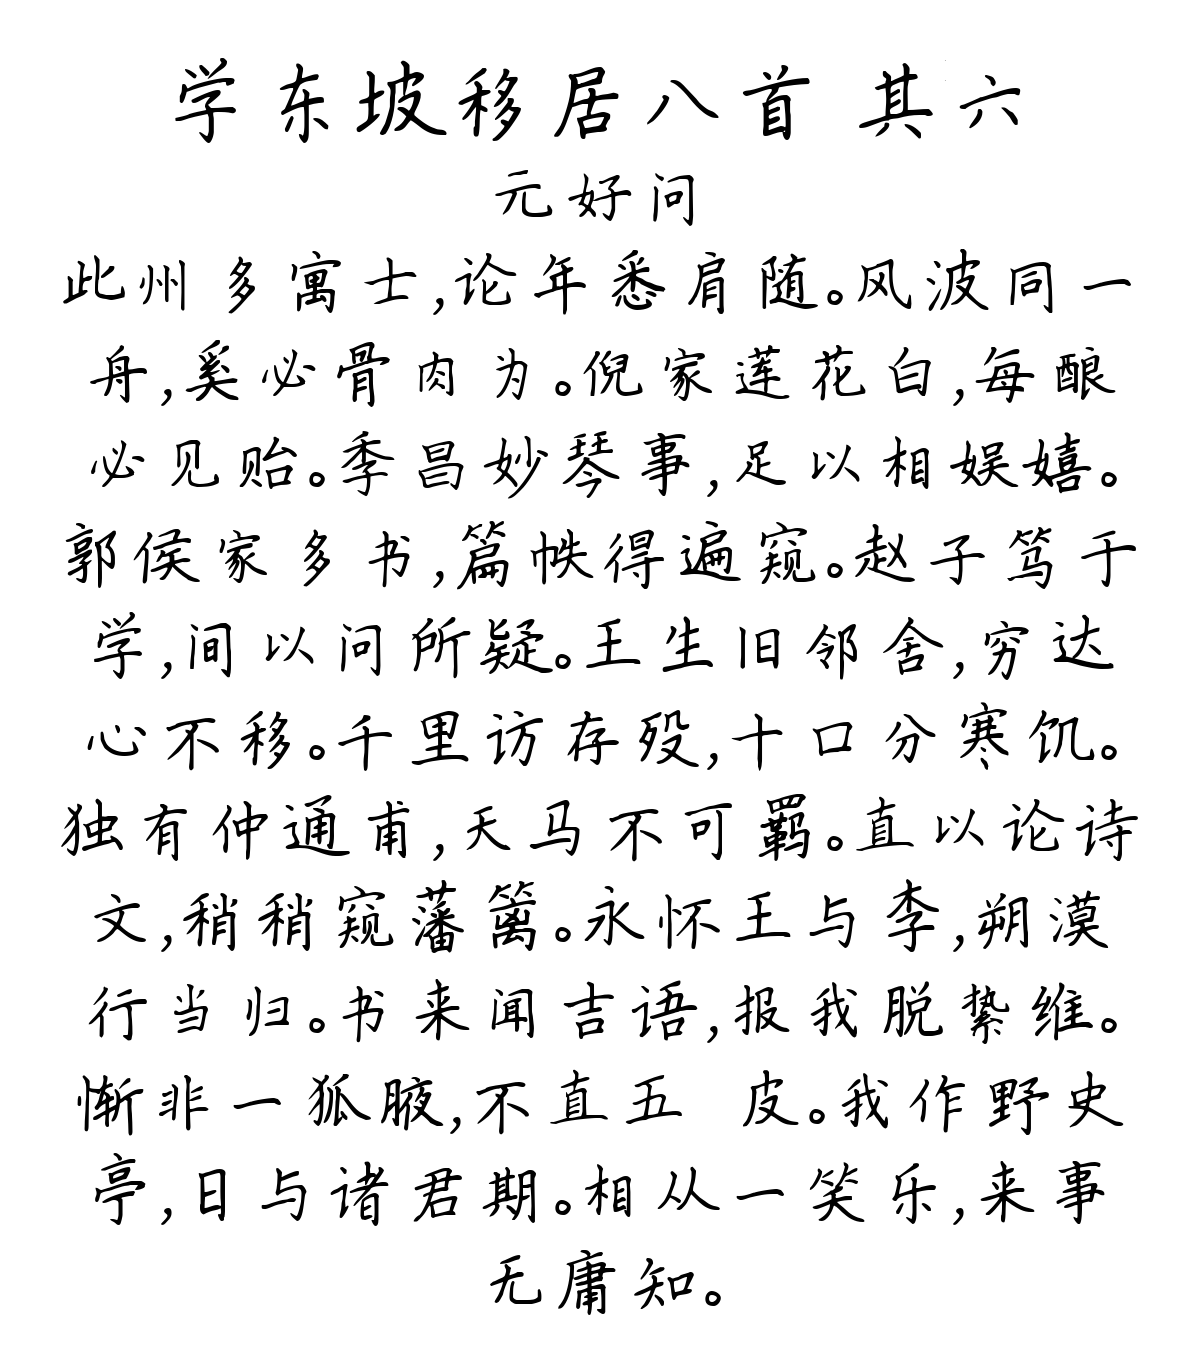 学东坡移居八首 其六
元好问
此州多寓士,论年悉肩随。风波同一
舟,奚必骨肉为。倪家莲花白,每酿
必见贻。季昌妙琴事,足以相娱嬉。
郭侯家多书,篇帙得遍窥。赵子笃于
学,间以问所疑。王生旧邻舍,穷达
心不移。千里访存殁,十口分寒饥。
独有仲通甫,天马不可羁。直以论诗
文,稍稍窥藩篱。永怀王与李,朔漠
行当归。书来闻吉语,报我脱絷维。
惭非一狐腋,不直五 皮。我作野史
亭,日与诸君期。相从一笑乐,来事
无庸知。